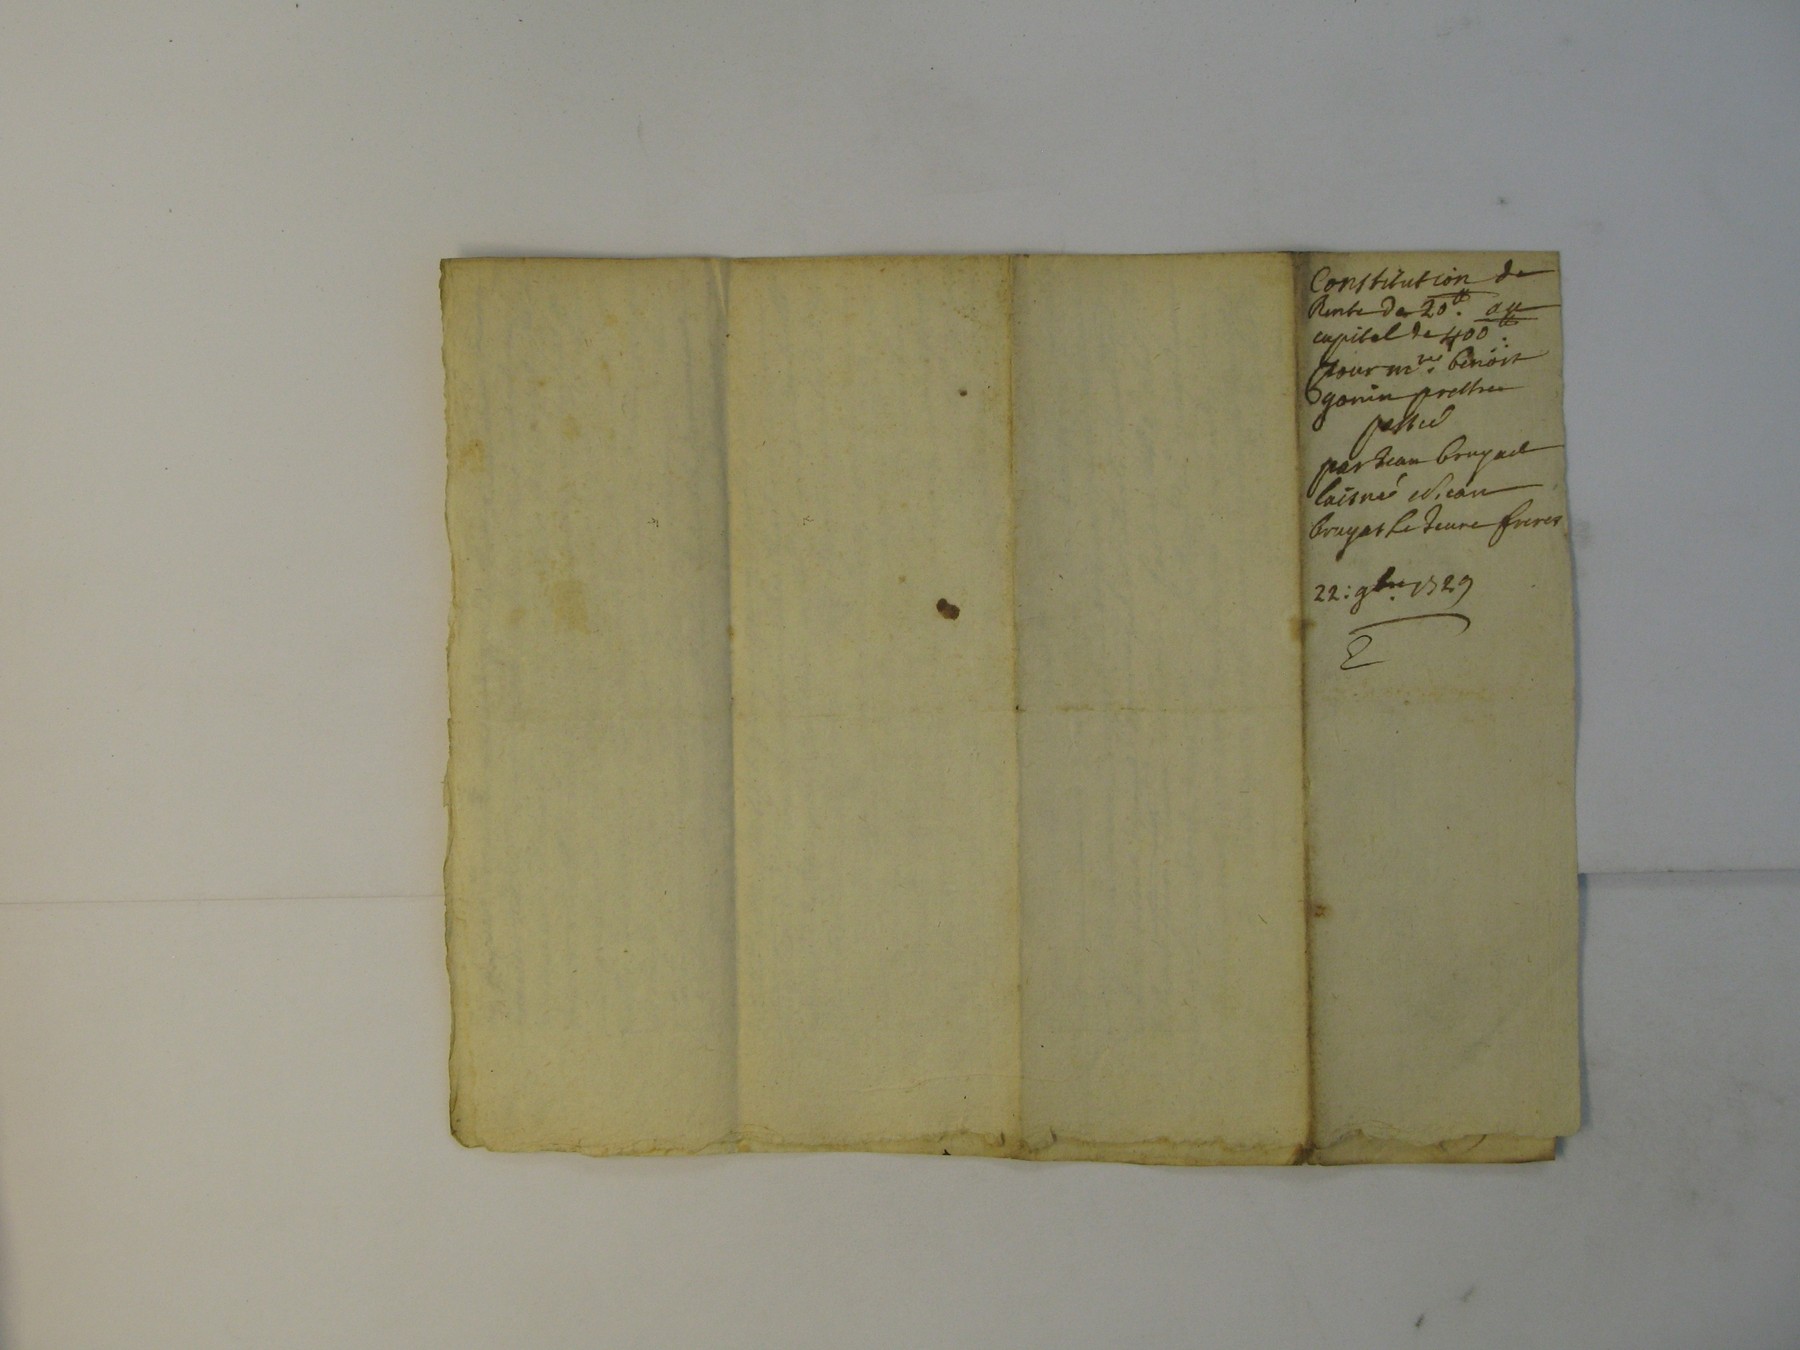 Constitution de
Rente de 20ᵗᵗ. au
capital de 400ᵗᵗ:
pour mʳᵉ. benoist
gonin prestre
passée
par Jean bruyat
laisné et Jean
bruyat le Jeune freres
22: 9bre. 1729